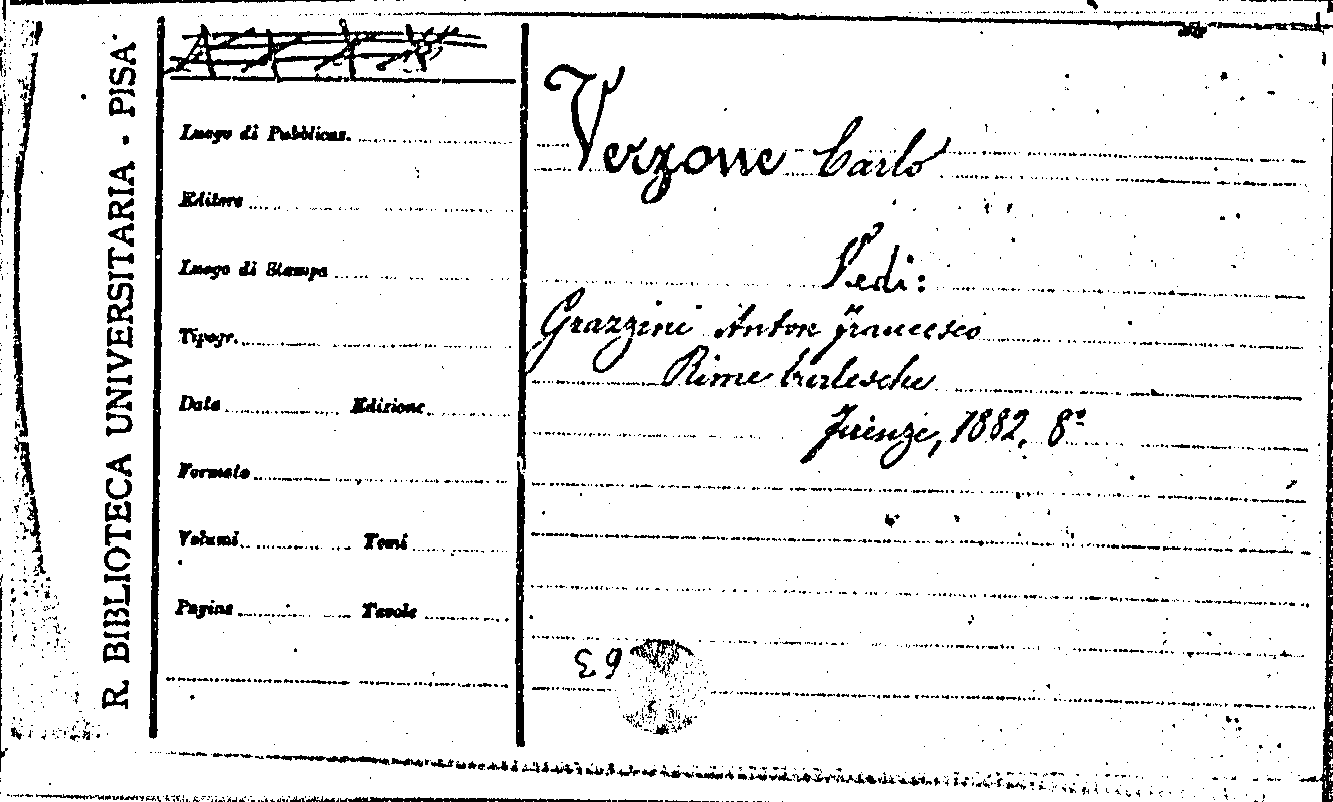 R. BIBLIOTECA UNIVERSITARIA - PISA
Luogo di Pubblicaz.
Editore
Luogo di Stampa
Tipogr.
Data Edizione
Formato
Volumi Tomi
Pagine Tavole
Verzone Carlo
Vedi:
Grazzini Anton Francesco
Rime burlesche
Firenze, 1882. 8°